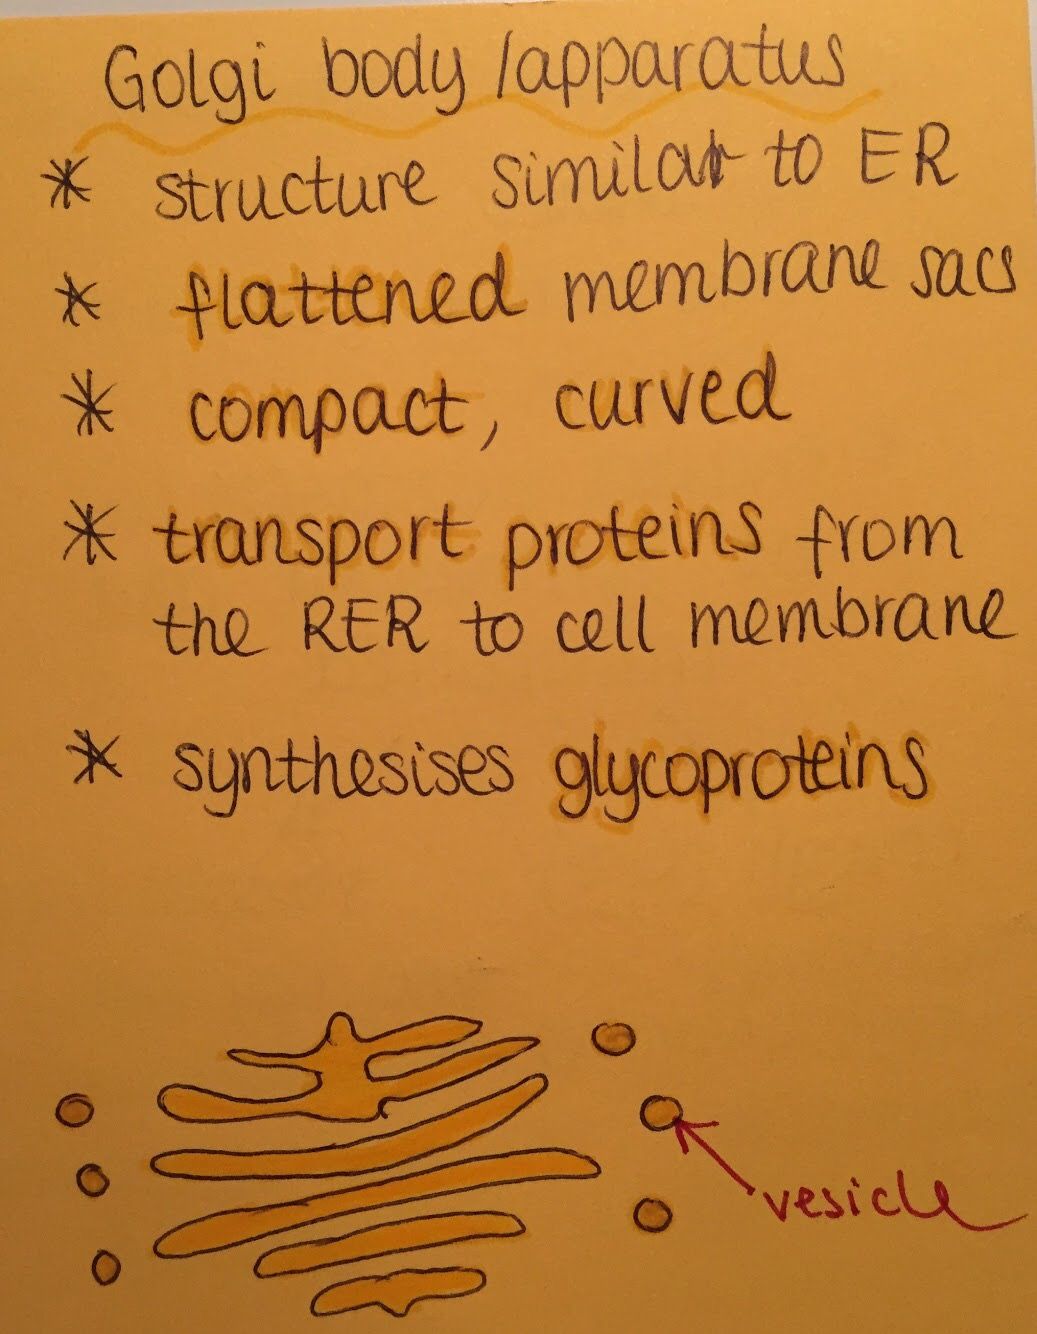 Golgi body /apparatus
* structure similar to ER
* flattened membrane sacs
* compact, curved
* transport proteins from
the RER to cell membrane
* synthesises glycoproteins
vesicle